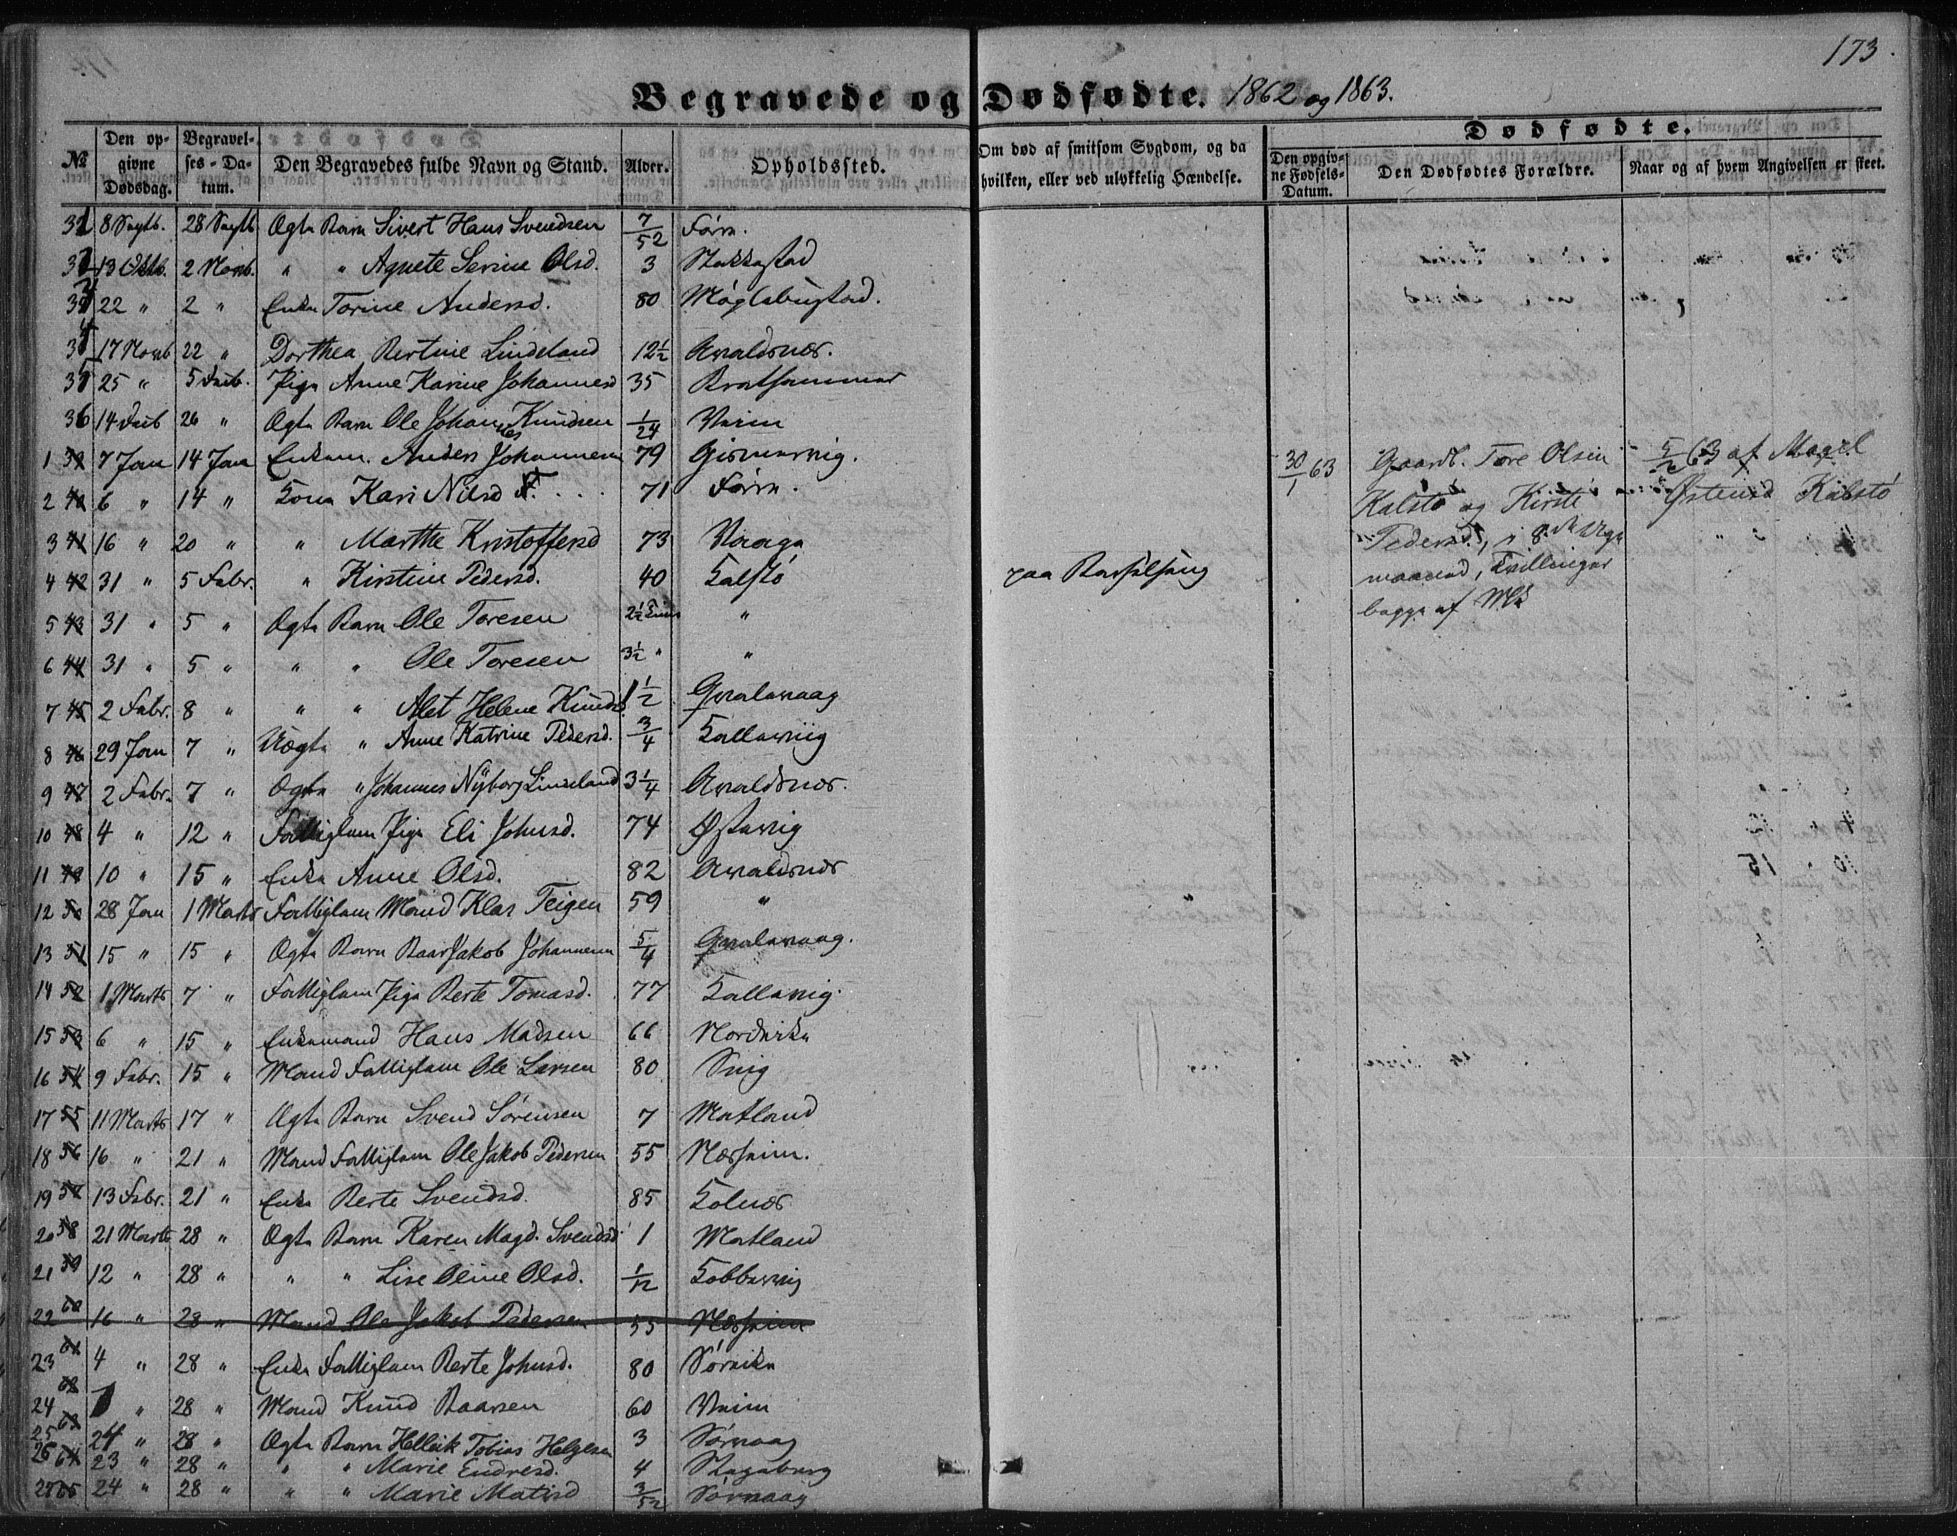 173.
Begravede og Dødfødte. 1862 og 1863.
Dødfødte.
№ Den opgivne Dødsdag. Begravelses-Datum. Den Begravedes fulde Navn og Stand. Alder. Opholdssted. Om død af smitsom Sygdom, og da hvilken, eller ved ulykkelig Hændelse. Den opgivne Fødsels-Datum. Den Dødfødtes Forældre. Naar og af hvem Angivelsen er skeet.
8 Septb. 28 Septb Ægte Barn Sivert Hans Svendsen 7/52 Førre.
13 Oktb. 2 Novb. " " Agnete Serine Olsd. 3 Stakkastad
22 " 2 " Enke Torine Andersd. 80
17 Novb 22 " Dorthea Bertine Lindeland 12½ Avaldsnæs.
25 " Pige Anne Karine Johannesd 35 Brathammer
36 14 26 " Ægte Barn Ole Johannes Knudsen 1/24
1 39 7 Jan 14 Jan Enkem. Anders Johannesen 79 Gismarvig.
2 40 6 " 14 " Kone Kari Nilsd 71 Førre.
3 41 16 " 20 " " Marthe Kristoffersd 73
4 42 31 " 5 Febr. " Kirstine Pedersd. 40 Kalstø paa Barselseng
5 43 31 " 5 " Ægte Barn Ole Toresen 2½ "
6 44 31 " 5 " " " Ole Toresen 3½ " "
7 45 2 Febr. 8 " " " Alet Helene Knudsd. 1½ Qvalavaag
8 46 29 Jan 7 " Uægte " Anne Katrine Pedersd. 3/4 Kallavig
9 47 2 Febr. 7 " Ægte " Johannes Nyborg Lindeland 3¼ Avaldsnæs.
10 48 4 " 12 " Fattiglem Pige Eli Johnsd. 74 Østavig
11 49 10 " 15 " Enke Anne Olsd. 82 Avaldsnæs
12 50 28 Jan 1 Marts Fattiglem Mand Klas Teigen 59 "
13 51 15 " 15 " Ægte Barn Baar Jakob Johannesen 5/4 Qvalavaag.
14 52 1 Marts 7 " Fattiglem Pige Berte Tomasd. 77 Kallavig.
15 53 6 " 15 " Enkemand Hans Madsen 66 Nordvike
16 54 9 Febr. 15 " Mand Fattiglem Ole Larsen 80
17 55 11 Marts 17 " Ægte Barn Svend Sørensen 7 Matland
18 56 16 " 21 " Mand Fattiglem Ole Jakob Pedersen 55 Næsheim.
19 57 13 Febr. 21 " Enke Berte Svendsd. 85 Kolnæs
20 58 21 Marts 28 " Ægte Barn Karen Magd. Svendsd 1 Matland
21 59 12 " 28 " " " Lise Oline Olsd. 1/12 Kobbervig
22 60 16 " 28 " Mand Ole Jakob Pedersen 55 Næsheim
23 61 4 " 28 " Enke Fattiglem Berte Johnsd. 80 Sørvike
24 62 " 28 " Mand Knud Baarsen 60
25 63 24 " 28 " Ægte Barn Hellik Tobias Helgesen 3 Sørvaag
26 64 23 " 28 " " " Marie Endresd. 4 Stegaberg
65 24 " 28 " " " Marie Matisd 3/52 Sørvaag
30/1 63 Gaardb. Tore Olsen
Kalstø og Kirste
Pedersd., i 8.
maaned, Tvillinger
begge af Mk
5/2 63 af
Østensd Kalstø